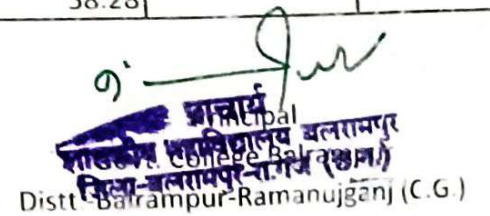 58.28
प्राचार्य
Principal
शासकीय महाविद्यालय बलरामपुर
College Balrampur
जिला-बलरामपुर-रा.गंज (छ.ग.)
Distt Balrampur-Ramanujganj (C.G.)